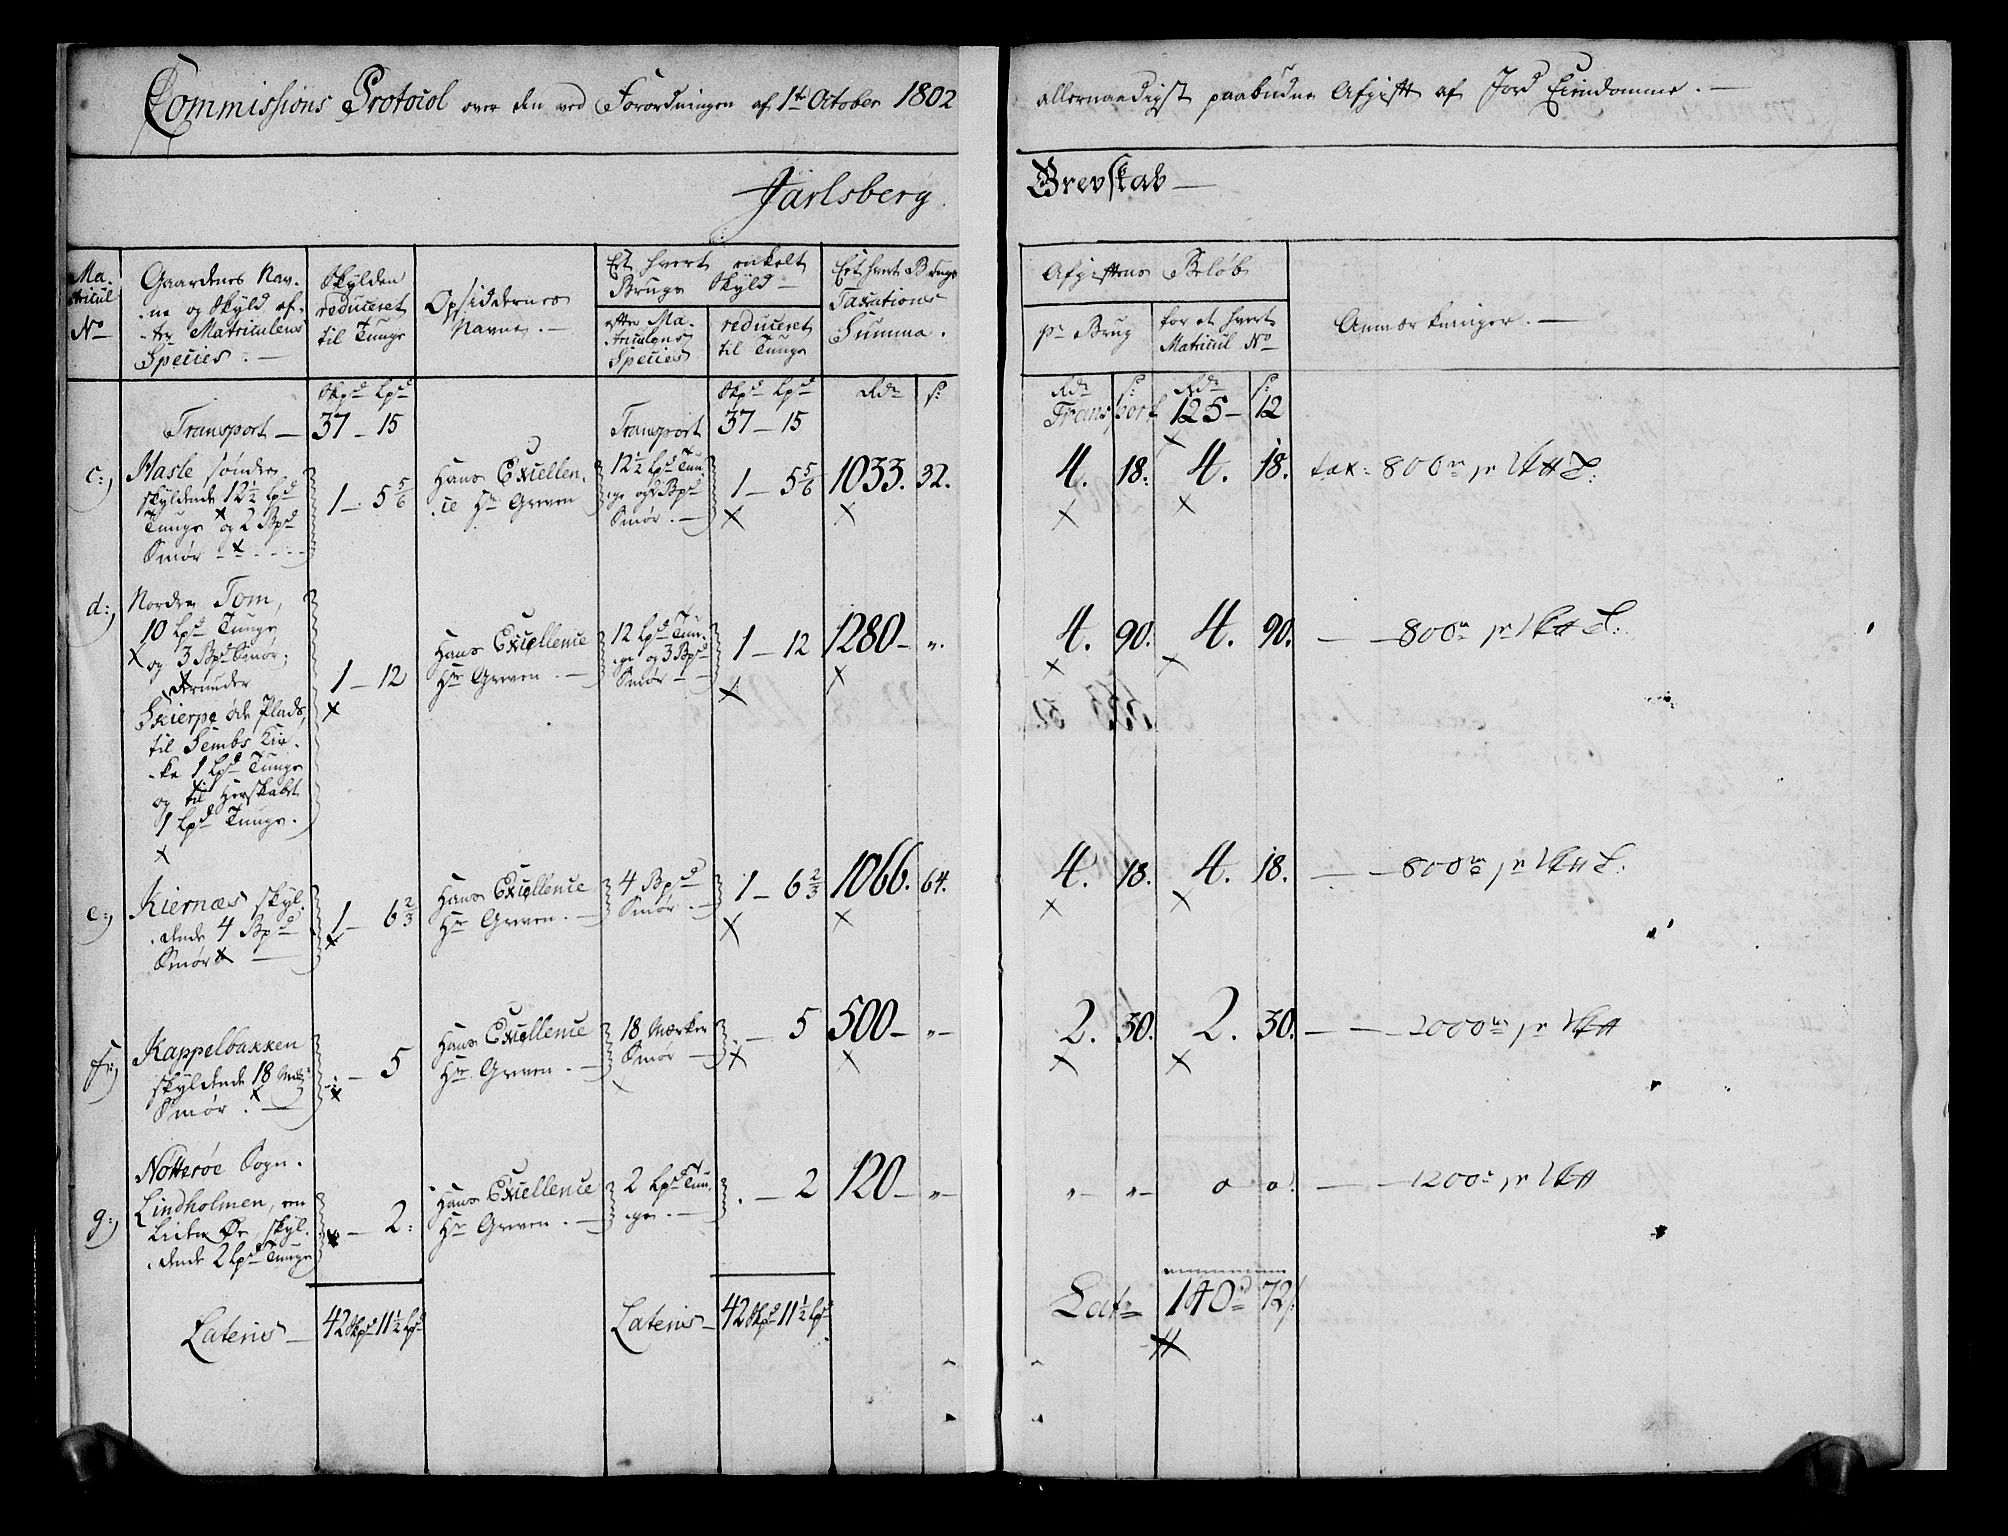 Commissions Protocol over den ved Forordningen af 1te October 1802
allernaadigst paabudne Afgift af Jord Eiendomme. —
Jarlsberg
Grevskab —
Ma-
tricul
No
Gaardenes Nav-
ne og Skyld ef-
ter Matriculens
Species. —
Skylden
reduceret
til Tunge
Opsiddernes
Navne. —
Et hvert enkelt
Brugs Skyld —
efter Ma-
triculens
Species
reduceret
til Tunge
Eet hvert Brugs
Taxations
Summa.
Afgiftens Beløb
pr Brug
for et hvert
Matricul No
Anmærkninger. —
Skpd Lpd
Skpd Lpd
Rdr s:
Rdr s: Rdr s:
Transport — 37 — 15 Transport 37 — 15 Transport 125 — 12
c:) Hasle søndre
skyldende 12½ Lpd
Tunge og 2 Bpd
Smør —
1 — 5 5/6
Hans Excellen-
ce Hr Greven
12½ Lpd Tun-
ge og 2 Bpd
Smør. —
1 — 5 5/6 1033. 32. 4. 18. 4. 18. tax: 800r pr
d:) Nordre Tom,
10 Lpd Tunge
og 3 Bpd Smør;
derunder
Skierpe øde Plads,
til Sembs Kir-
ke 1 Lpd Tunge
og til Herskabet
1 Lpd Tunge.
1 — 12
Hans Excellence
Hr Greven. —
12 Lpd Tun-
ge og 3 Bpd
Smør —
1 — 12 1280 — „. 4. 90. 4. 90. — — 800r pr
e:) Kiernæs skyl-
dende 4 Bpd
Smør —
1 — 6 2/3
Hans Excellence
Hr Greven. —
4 Bpd
Smør. —
1 — 6 2/3 1066. 64. 4. 18. 4. 18. — — 800r pr
f:) Kappelbakken
skyldende 18 Mrk
Smør. —
— 5
Hans Excellence
Hr Greven. —
18 Mærker
Smør —
— 5 500 — „ — 2. 30. 2. 30. — — 2000r pr
Nøtterøe Sogn.
g:) Lindholmen, en
Liden Øe, skyl-
dende 2 Lpd Tunge
— 2:
Hans Excellence
Hr Greven. —
2 Lpd Tun-
ge. —
. — 2 120 — „ — „ — „ — 0 0. — — 1200r pr
Lateris — 42 Skpd 11½ Lpd Lateris — 42 Skpd 11½ Lpd Latr 140d 72s